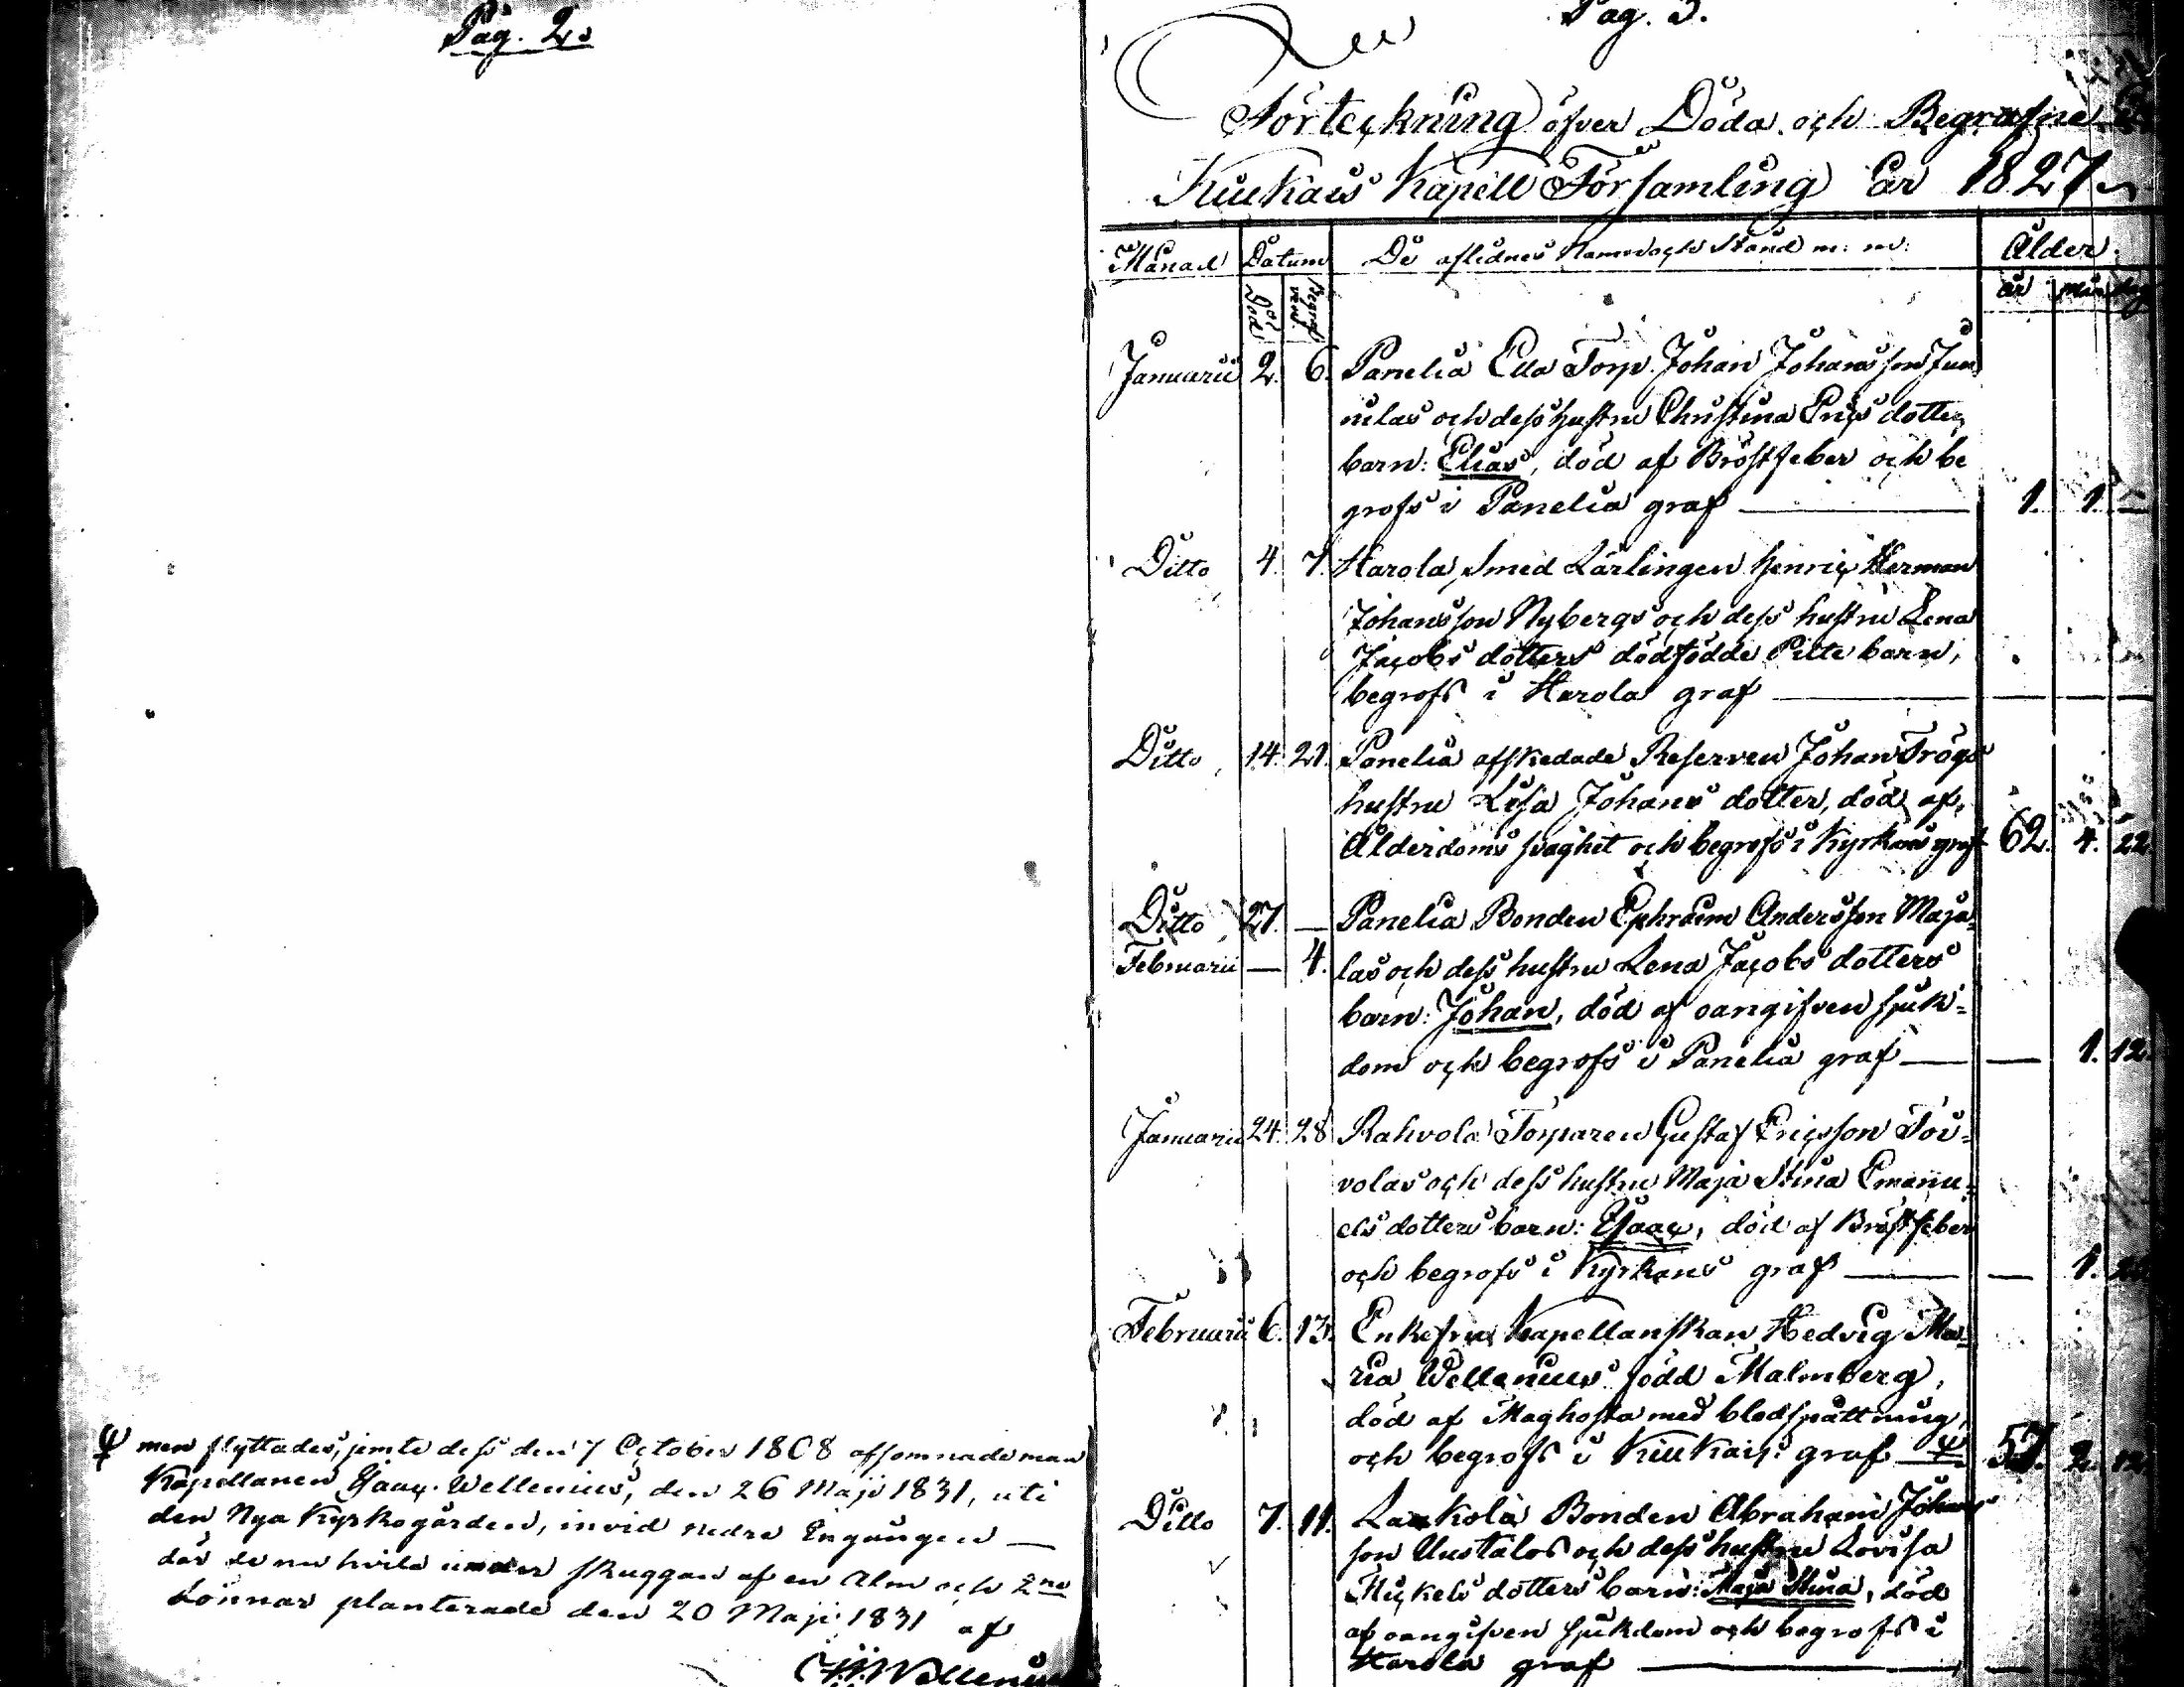 Pag. 2.
Ψ men flyttades, jemte dess den 7 October 1808 afsomnade man
Kapellanen Isaac Wellenius, den 26 Maji 1831, uti
den Nya Kyrkogården, invid nedra Ingången —
där de nu hvila under skuggan af en Alm och 2ne
Lönnar planterade den 20 Maji 1831 af
Wellenius
Pag. 3.
Förteckning öfver Döda och Begrafne
Kiukais Kapell Församling År 1827
Månad Datum De aflidnes Namn och Stånd m: m: Ålder.
Död Begrafven. år mån dag
Januarii 2. 6. Panelia Torp. Johan Johansson Jun
nilas och dess hustru Christina Erics dotters
barn: Elias, död af Bröstfeber och be
grofs i Panelia graf — 1. 1. —
Ditto 4. 7. Harola Smed Lärlingen Henric Herman
Johansson Nybergs och dess hustru Lena
Jacobs dotters dödfödde Pilte barn,
begrofs i Harola graf —
Ditto 14. 21. Panelia afskedade Reserven Johan Trögs
hustru Lisa Johans dotter, död af
Ålderdoms svaghet och begrofs i Kyrkans graf 62. 4. 22.
Ditto 27. — Panelia Bonden Ephraim Andersson Maja
Februarii — 4. las och dess hustru Lena Jacobs dotters
barn: Johan, död af oangifven sjuk-
dom och begrofs i Panelia graf — — 1. 12.
Januarii 24. 28 Rahvola Torparen Gustaf Ericsson Toi-
volas och dess hustru Maja Stina Emanu-
els dotters barn: Isaac, död af Bröstfeber
och begrofs i Kyrkans graf — — 1.
Februarii 6. 13. Enkefru Kapellanskan Hedvig Ma-
ria Wellenius född Malmberg,
död af Maghosta med blodspättning,
och begrofs i Kiukais graf Ψ 57. 2. 12.
Ditto 7. 11. Laukola Bonden Abraham Johans
son Uustalos och dess hustru Lovisa
Mickels dotters barn: Maja Stina, död
af oangifven sjukdom och begrofs i
Harola graf —